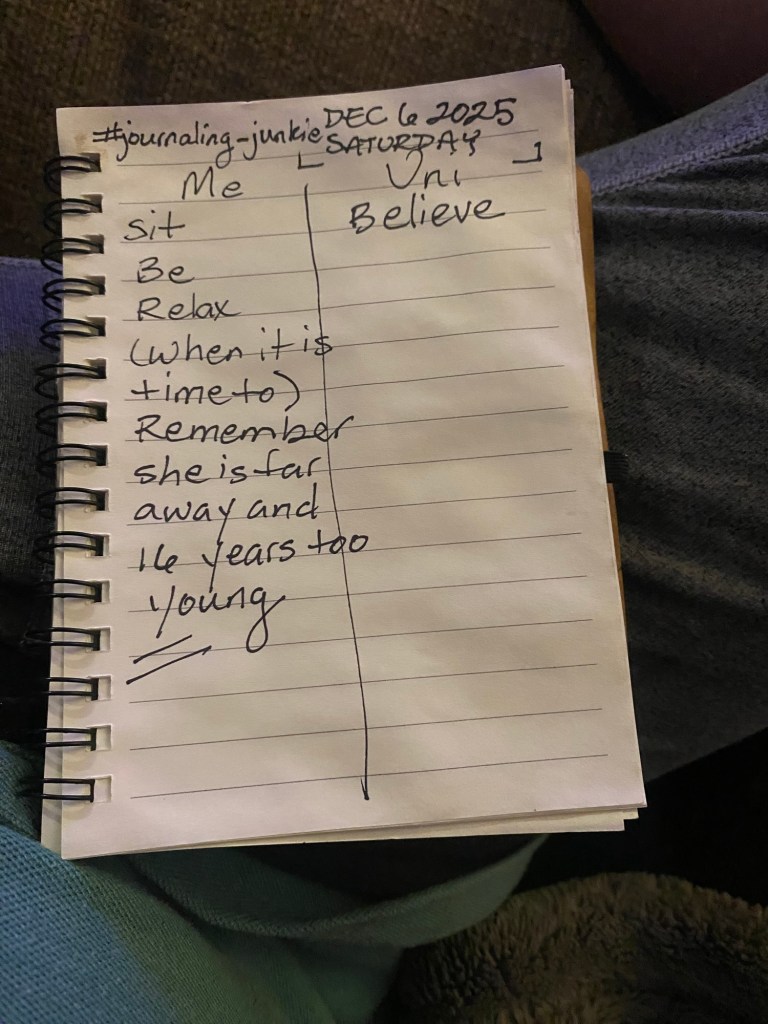 #journaling-junkie DEC 6 2025
SATURDAY
Me Uni
Sit Believe
Be
Relax
(when it is
time to)
Remember
she is far
away and
16 years too
young